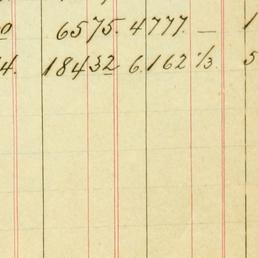 0 6575. 4777. — 1
4. 18432 6.162 ⅔. 5